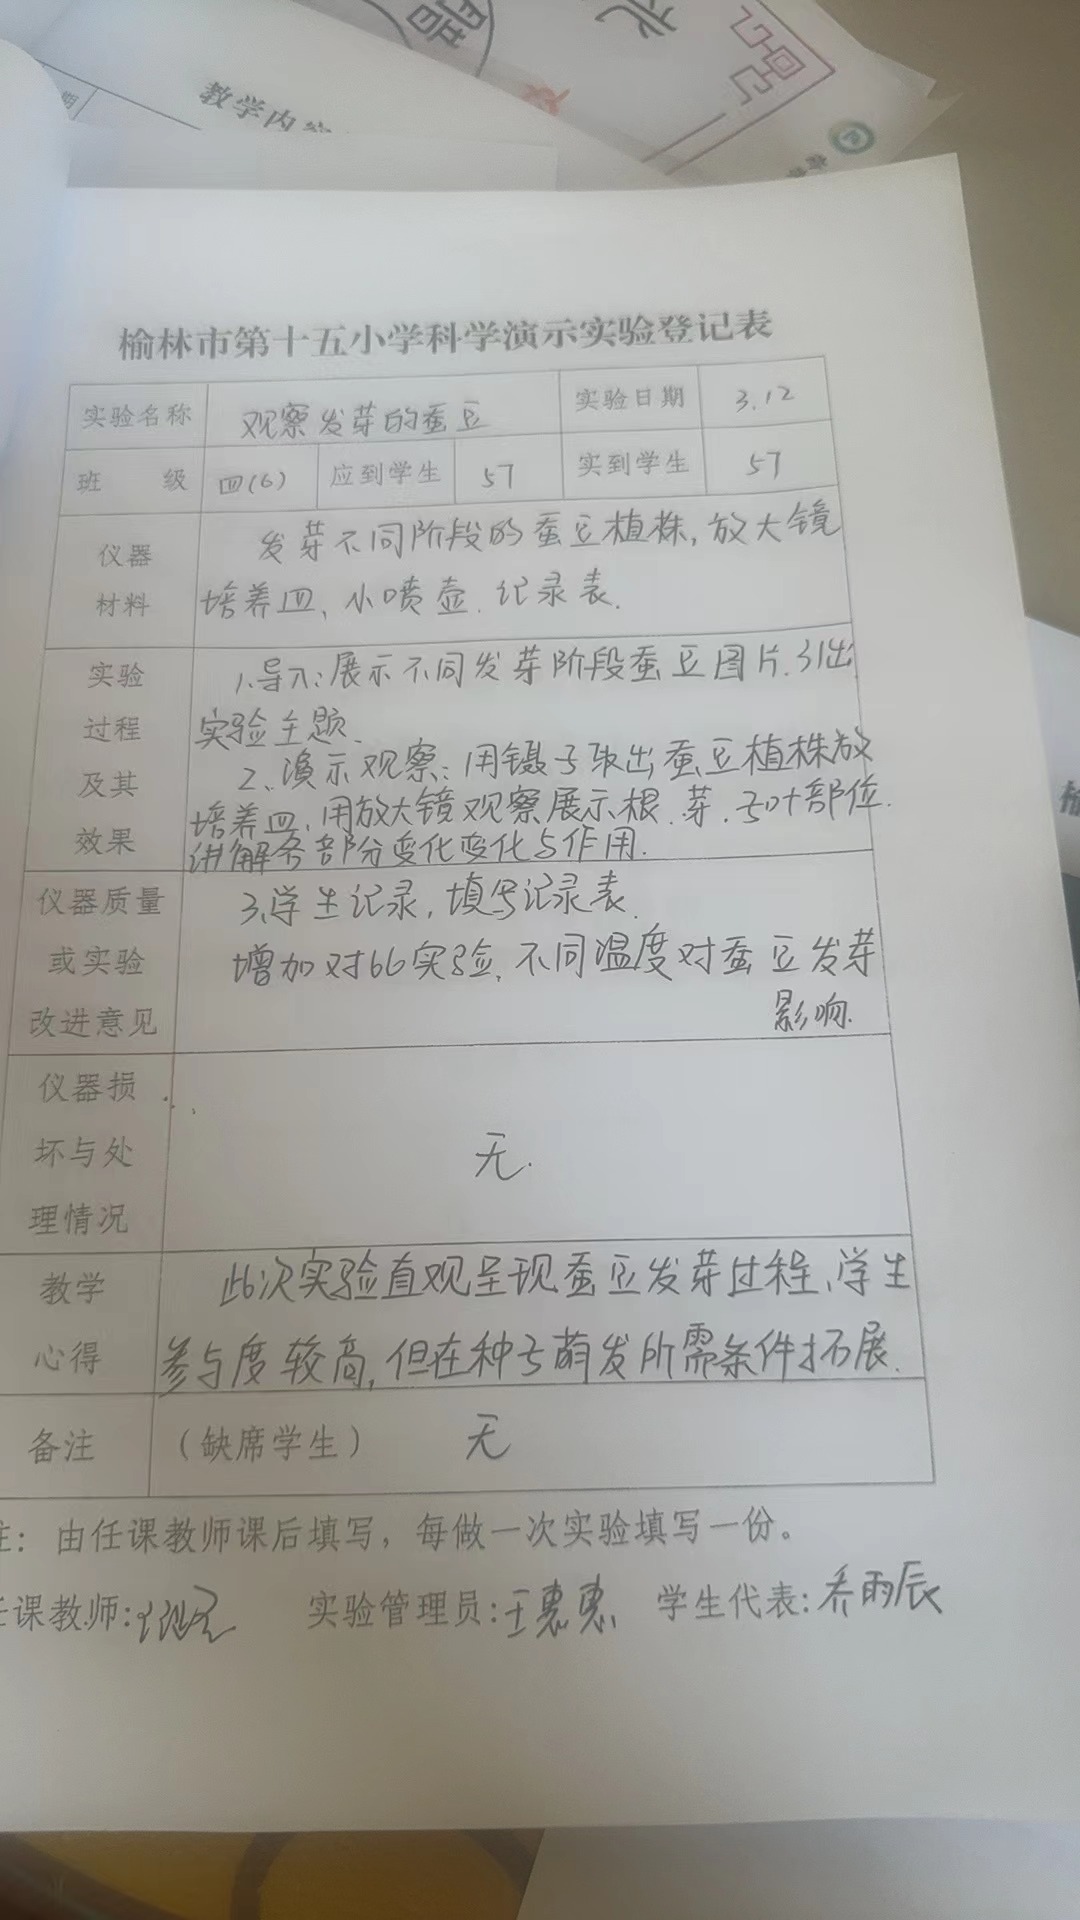 教学内容
期
榆林市第十五小学科学演示实验登记表
实验名称 观察发芽的蚕豆 实验日期 3.12
班 级 四(6) 应到学生 57 实到学生 57
仪器 发芽不同阶段的蚕豆植株,放大镜
材料 培养皿、小喷壶、纪录表.
实验 1.导入:展示不同发芽阶段蚕豆图片.引出
过程 实验主题.
及其 2、演示观察:用镊子取出蚕豆植株放
培养皿,用放大镜观察展示根.芽.子叶部位.
效果 讲解各部分变化变化与作用.
仪器质量 3、学生记录,填写记录表.
或实验 增加对比实验,不同温度对蚕豆发芽
改进意见 影响.
仪器损
坏与处 无.
理情况
教学 此次实验直观呈现蚕豆发芽过程、学生
心得 参与度较高,但在种子萌发所需条件拓展.
备注 (缺席学生) 无
注：由任课教师课后填写，每做一次实验填写一份。
任课教师: 实验管理员:王惠惠 学生代表:乔雨辰